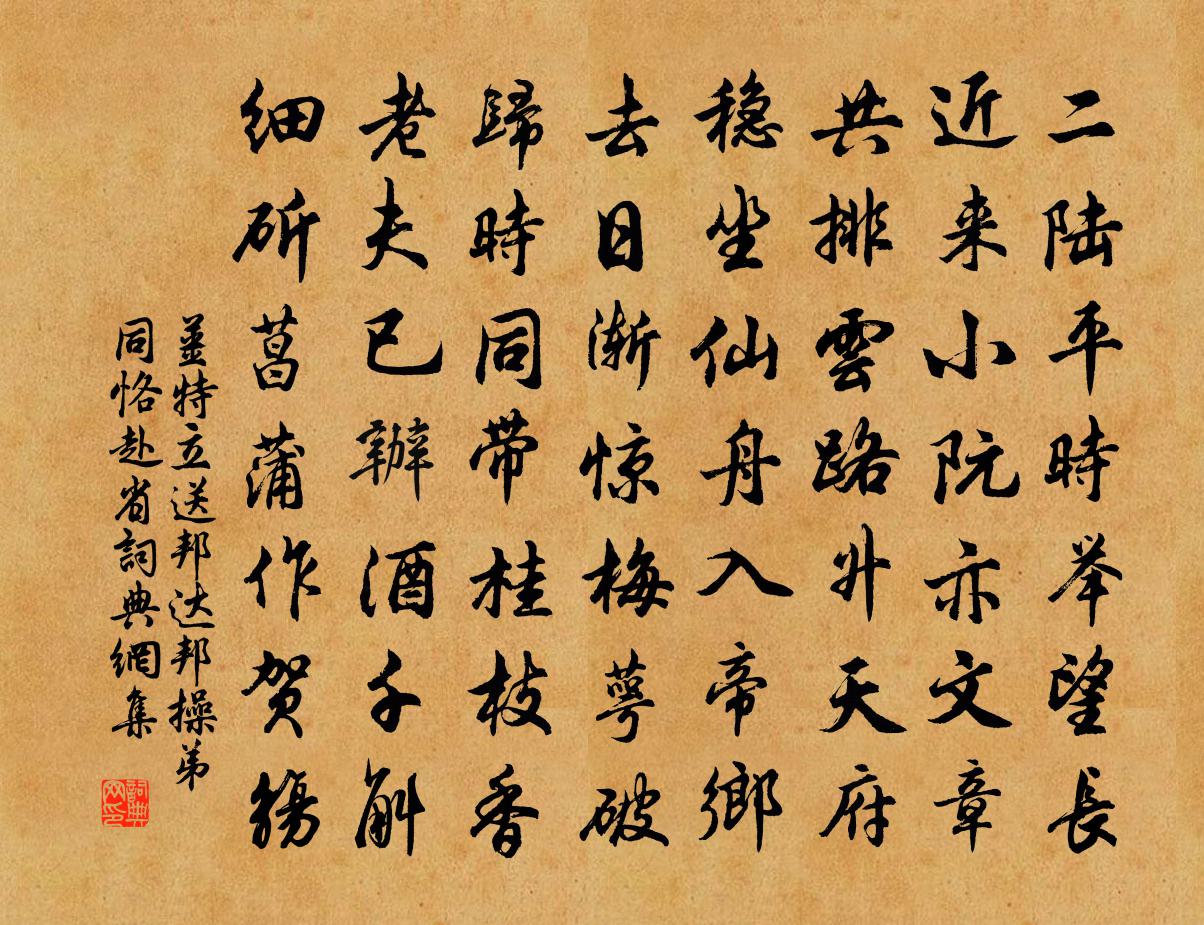 二陆平時举望長
近来小阮亦文章
共排雲路升天府
稳坐仙舟入帝鄉
去日渐惊梅萼破
歸時同带桂枝香
老夫已辦酒千斛
细斫菖蒲作贺觞
姜特立送邦达邦操弟
同恪赴省詞典網集
詞典
网印